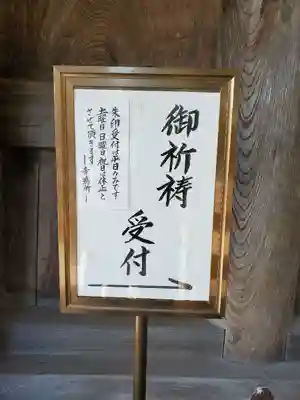 御祈祷
受付
朱印受付は平日のみです
土曜日日曜日祝日は休止と
させて頂きます